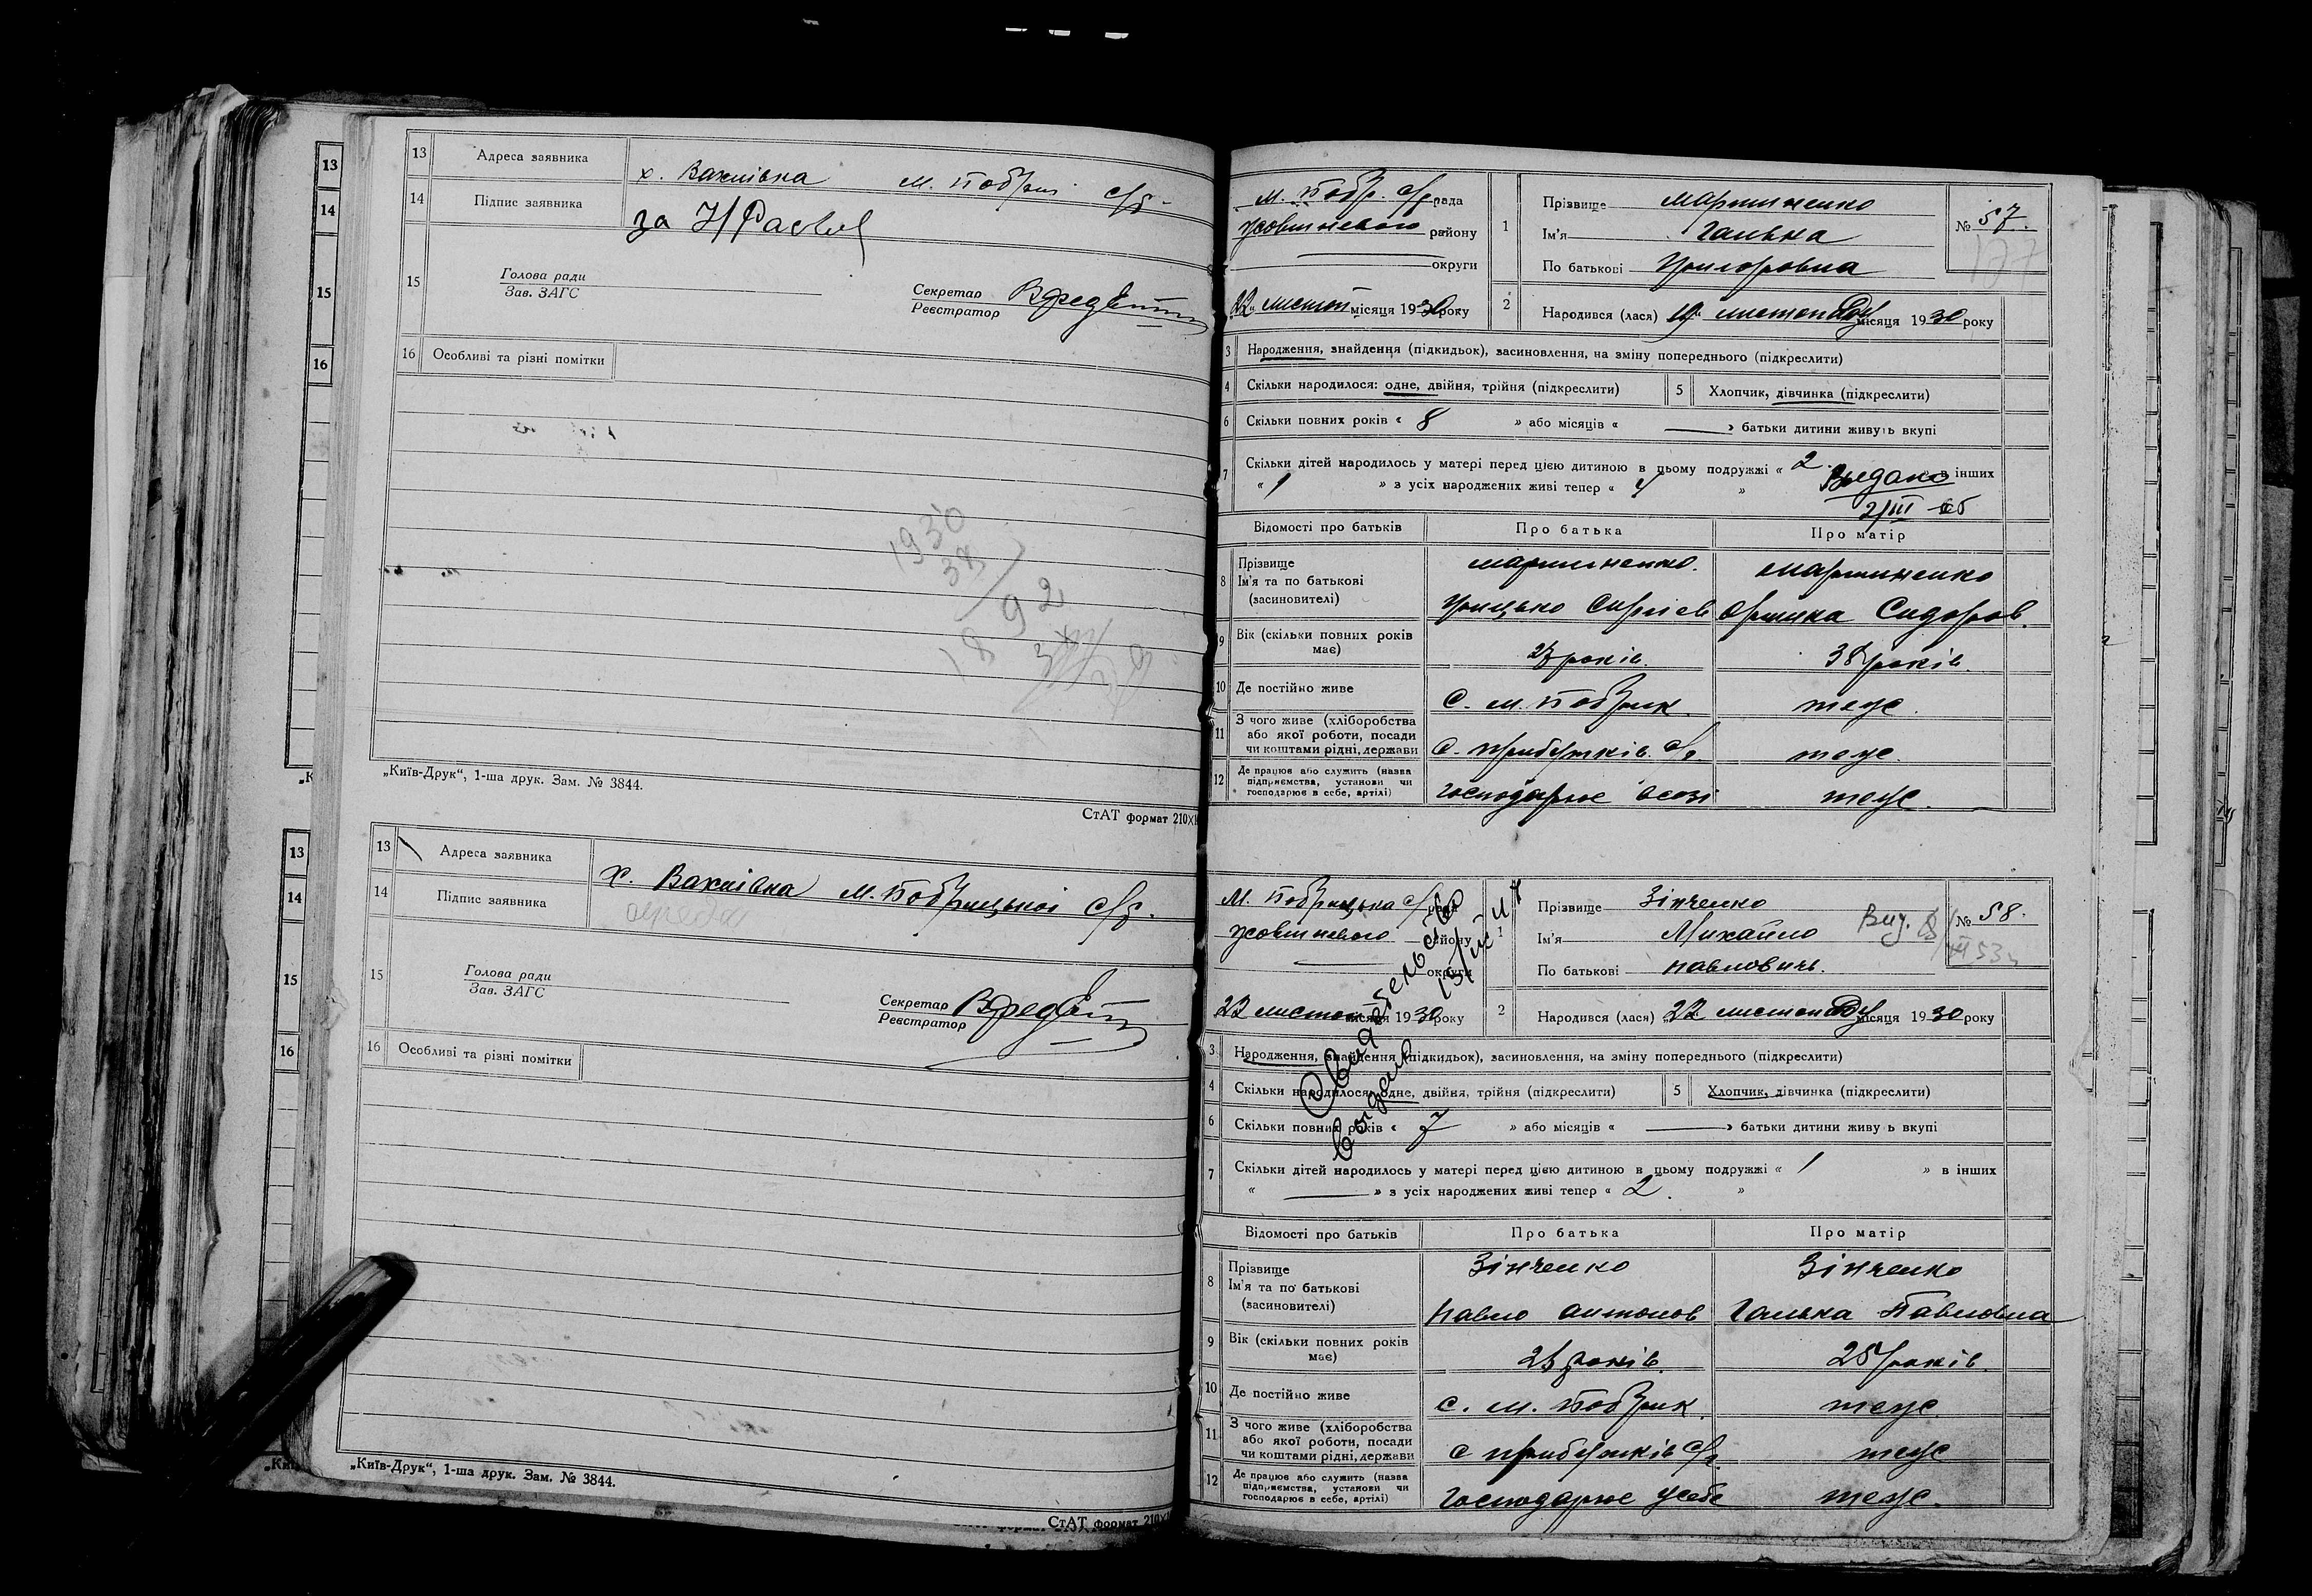 13 Адреса заявника х. Вахнівка м. Побриц с/р
14 Підпис заявника за
15 Голова ради
Зав. ЗАГС
Секретар
Реєстратор
16 Особливі та різні помітки
1930
38
1892
„Київ-Друк“, 1-ша друк. Зам. № 3844.
СтАТ формат 210
13 Адреса заявника х. Вахнівка м. Побрицької с/р.
14 Підпис заявника
15 Голова ради
Зав. ЗАГС
Секретар
Реєстратор
16 Особливі та різні помітки
„Київ-Друк“, 1-ша друк. Зам. № 3844.
СтАТ формат 210
м. Побр. с/р рада
району
округи
22 листоп місяця 1930 року
1 Прізвище Мартиненко
Ім'я Галька
По батькові Григоровна
№ 57.
177
2 Народився (лася) 19 листопада місяця 1930 року
3 Народження, знайдення (підкидьок), засиновлення, на зміну попереднього (підкреслити)
4 Скільки народилося: одне, двійня, трійня (підкреслити) 5 Хлопчик, дівчинка (підкреслити)
6 Скільки повних років « 8 » або місяців « — » батьки дитини живуть вкупі
7 Скільки дітей народилось у матері перед цією дитиною в цьому подружжі « 2 » в інших
« 1 » з усіх народжених живі тепер « 4 »
Выдано
2/III
Відомості про батьків Про батька Про матір
8 Прізвище Мартиненко. Мартиненко
Ім'я та по батькові
(засновителі) Грицько Сиргієв Оришка Сидоров.
9 Вік (скільки повних років має) 27 років. 38 років.
10 Де постійно живе с. м. Побрик теж.
11 З чого живе (хліборобства або якої роботи, посади чи коштами рідні, держави с. прибутків с/г. теж.
12 Де працює або служить (назва підприємства, установи чи господарює в себе, артілі) господарює теж.
м. Побрицька с/рада
району
округи
22 листоп місяця 1930 року
Свидетельство
выдано
1 Прізвище Зінченко
Ім'я Михайло
По батькові Павлович.
№ 58.
2 Народився (лася) 22 листопада місяця 1930 року
3 Народження, знайдення (підкидьок), засиновлення, на зміну попереднього (підкреслити)
4 Скільки народилося: одне, двійня, трійня (підкреслити) 5 Хлопчик, дівчинка (підкреслити)
6 Скільки повних років « 7 » або місяців « — » батьки дитини живу ь вкупі
7 Скільки дітей народилось у матері перед цією дитиною в цьому подружжі « 1 » в інших
« — » з усіх народжених живі тепер « 2. »
Відомості про батьків Про батька Про матір
8 Прізвище Зінченко Зінченко
Ім'я та по батькові
(засиновителі) Павло Антонов Галька Павловна
9 Вік (скільки повних років має) років. 25 років.
10 Де постійно живе с. м. Побрик. теж
11 З чого живе (хліборобства або якої роботи, посади чи коштами рідні, держави с прибутків с/г. теж
12 Де працює або служить (назва підприємства, установи чи господарює в себе, артілі) господарює усебе теж.